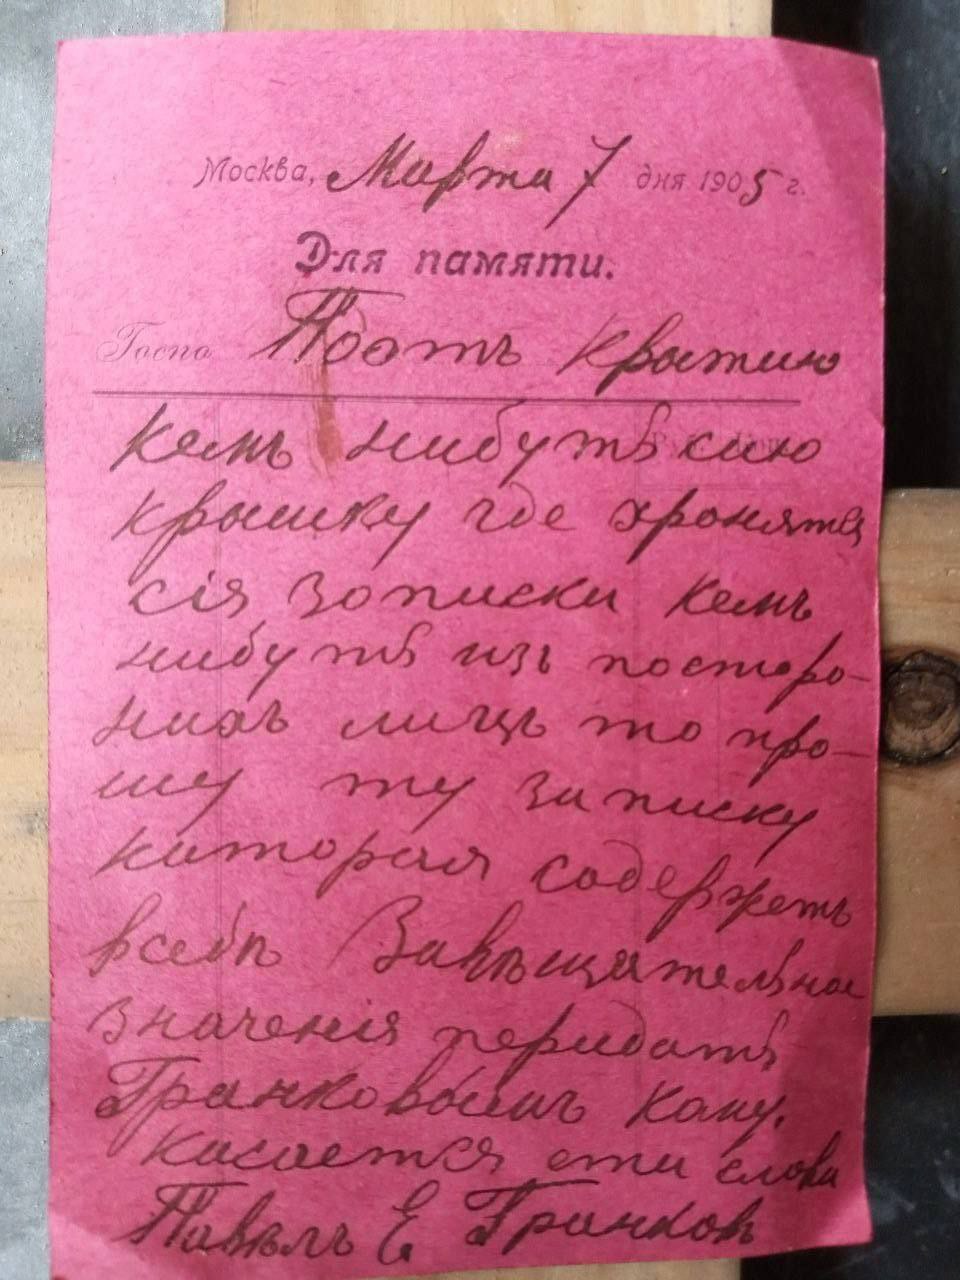 Москва, Марта 7 дня 1905 г.
Для памяти.
Госпо Подъ крытию
кемъ нибуть сию
крышку где хронятся
сія зописки кемъ
нибуть изъ посторо-
нихъ лицъ то про-
шу ту записку
которая содержеть
всебѣ Завѣщательное
значенія перидать
Гранковымъ кому.
косается эти слова
Павелъ Е Гранковъ